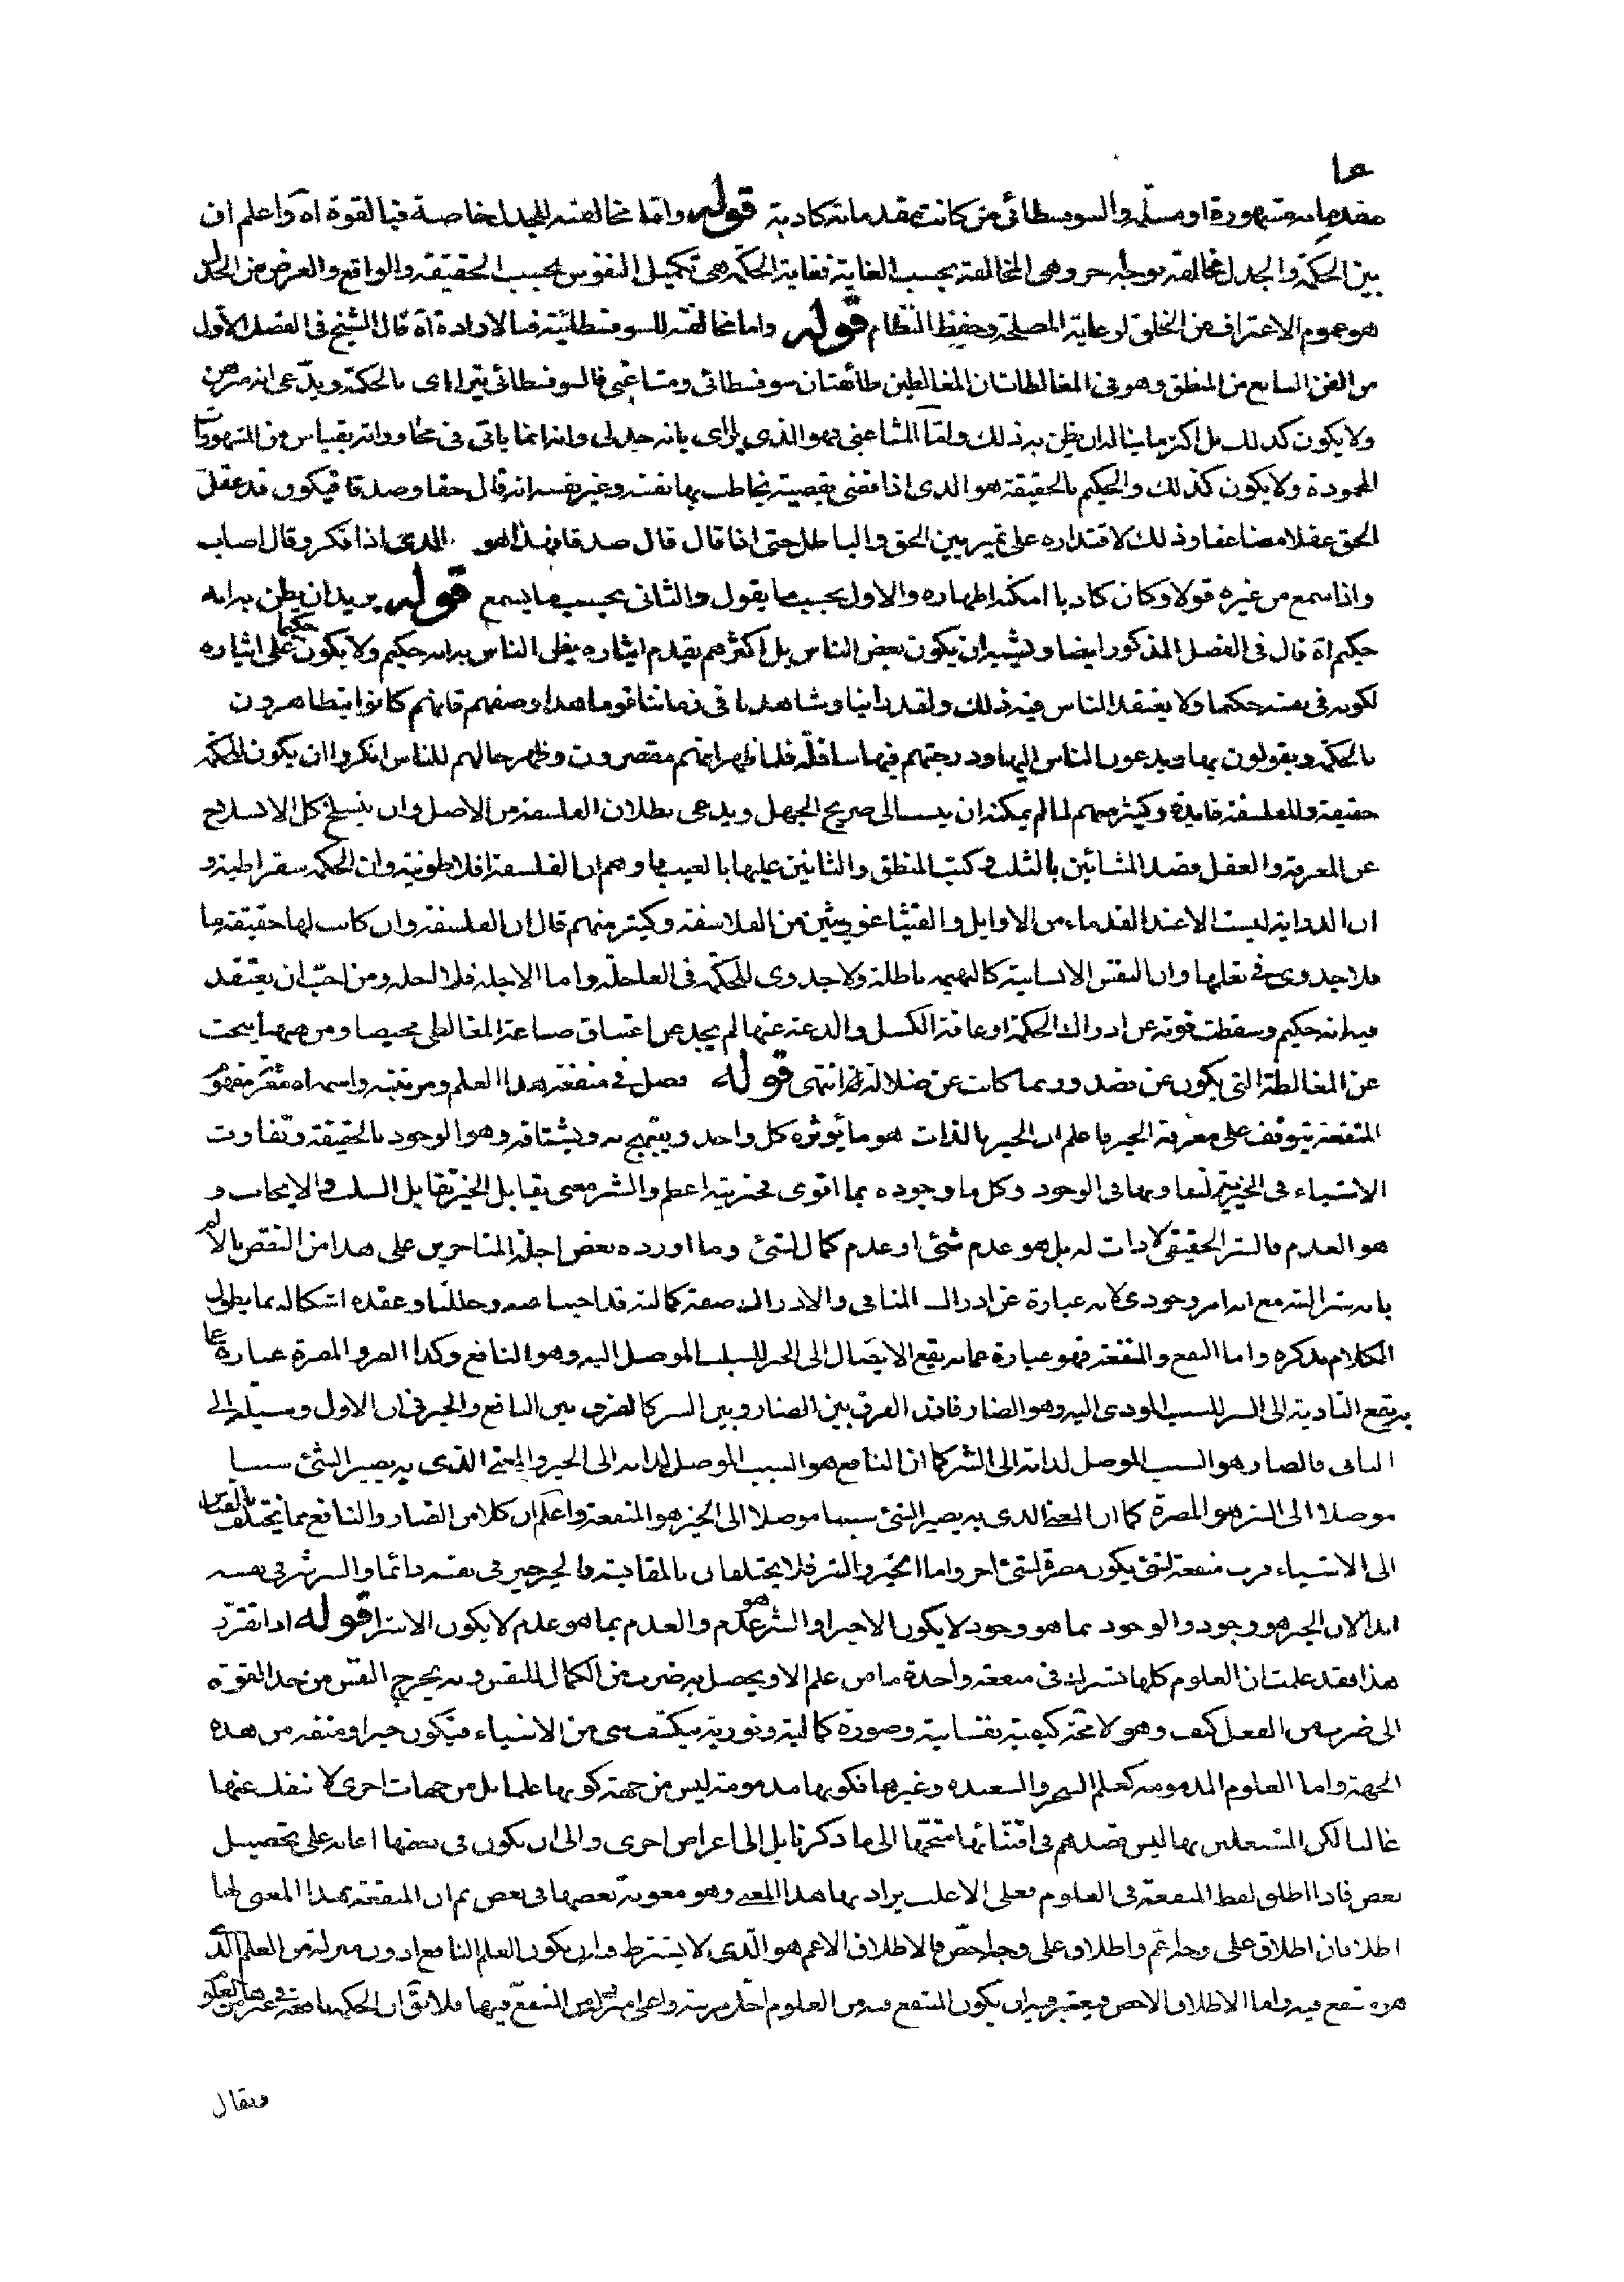 مقدماته مشهورة او مسلمة والسوفسطائى من كانت مقدماته كاذبة قوله واما مخالفته للجدل خاصة فبالقوة اه واعلم ان
بين الحكمة والجدل مخالفة بوجه اخر وهى المخالفة بحسب الغاية فغاية الحكمة هى تكميل النفوس بحسب الحقيقة والواقع والغرض من الجدل
هو عموم الاعتراف من الخلق لرعاية المصلحة وحفظ النظام قوله واما مخالفته للسوفسطائية فبالارادة اه قال الشيخ فى الفصل الاول
من الفن السابع من المنطق وهو فى المغالطات ان المغالطين طائفتان سوفسطائى ومشاغبى فالسوفسطائى يترااى بالحكمة ويدعى انه مبرهن
ولا يكون كذلك بل اكثر ما يناله ان يظن به ذلك واما المشاغبى فهو الذى يترااى بانه جدلى وانه انما ياتى فى محاوراته بقياس من المشهورات
المحمودة ولا يكون كذلك والحكيم بالحقيقة هو الذى اذا قضى بقضية يخاطب بها نفسه وغير نفسه انه قال حقا وصدقا فيكون قد عقل
الحق عقلا مضاعفا وذلك لاقتداره على تمييز بين الحق والباطل حتى اذا قال قال صدقا فهذا هو الذى اذا فكر وقال اصاب
واذا سمع من غيره قولا وكان كاذبا امكنه اظهاره والاول بحسب ما يقول والثانى بحسب ما يسمع قوله يريد ان يظن به انه
حكيم اه قال فى الفصل المذكور ايضا ويشبه ان يكون بعض الناس بل اكثرهم يقدم ايثاره يظن الناس به انه حكيم ولا يكون حكيما على ايثاره
لكونه فى نفسه حكيما ولا يعتقد الناس فيه ذلك ولقد راينا وشاهدنا فى زماننا قوما هذا وصفهم فانهم كانوا يتظاهرون
بالحكمة ويقولون بها ويدعون الناس اليها ودرجتهم فيها سافلة فلما ظهر انهم مقصرون وظهر حالهم للناس انكروا ان يكون للحكمة
حقيقة وللفلسفة فايدة وكثير منهم لما لم يمكنه ان ينسب الى صريح الجهل ويدعى بطلان الفلسفة من الاصل وان ينسلخ كل الانسلاخ
عن المعرفة والعقل قصد المشائين بالثلب وكتب المنطق والبانين عليها بالعيب فاوهم ان الفلسفة افلاطونية وان الحكمة سقراطية و
ان الدراية ليست الا عند القدماء من الاوايل والفيثاغوريين من الفلاسفة وكثير منهم قال ان الفلسفة وان كانت لها حقيقة ما
فلا جدوى فى تعلمها وان النفس الانسانية كالبهيمية باطلة ولا جدوى للحكمة فى العاجلة واما الاجلة فلا اجلة ومن احب ان يعتقد
فيه انه حكيم وسقطت قوته عن ادراك الحكمة او عاقه الكسل والدعة عنها لم يجد عن اعتناق صناعة المغالطين محيصا ومن ههنا يبحث
عن المغالطة التى يكون عن قصد وربما كانت عن ضلالة انتهى قوله فصل فى منفعة هذا العلم ومرتبته واسمه اه معرفة مفهوم
المنفعة يتوقف على معرفة الخير فاعلم ان الخير بالذات هو ما يؤثره كل واحد ويبتهج به ويشتاقه وهو الوجود بالحقيقة وتفاوت
الاشياء فى الخيرية لتفاوتها فى الوجود وكل ما وجوده بما اقوى فخيريته اعظم والشر معنى يقابل الخير تقابل السلب والايجاب و
هو العدم فالشر الحقيقى لا ذات له بل هو عدم شئ او عدم كمال لشئ وما اورده بعض اجلة المتاخرين على هذا من النقض بالالم
بانه شر الشر مع انه امر وجودى لانه عبارة عن ادراك المنافى والادراك صفة كمالية قد اجبنا عنه وحللنا عقده اشكاله بما يطول
الكلام بذكره واما النفع والمنفعة فهو عبارة عما به يقع الايصال الى الخير للسبب الموصل اليه وهو النافع وكذا الضر والمضرة عبارة عما
به يقع التادية الى الشر للسبب المودى اليه وهو الضار فاذن الفرق بين الضار وبين الشر كالفرق بين النافع والخير فى ان الاول وسيلة الى
الثانى فالضار هو السبب الموصل لذاته الى الشر كما ان النافع هو السبب الموصل لذاته الى الخير والمعنى الذى به يصير الشئ سببا
موصلا الى الشر هو المضرة كما ان المعنى الذى به يصير الشئ سببا موصلا الى الخير هو المنفعة واعلم ان كلا من الضار والنافع مما يختلف بالقياس
الى الاشياء فرب منفعة لشئ يكون مضرة لشئ اخر واما الخير والشر فلا يختلفان بالمقايسة فالخير خير فى نفسه دائما والشر شر فى نفسه
ابدا لان الخير هو وجود والوجود بما هو وجود لا يكون الا خيرا والشر هو عدم والعدم بما هو عدم لا يكون الا شرا قوله اذا تقرر
هذا فقد علمت ان العلوم كلها تشترك فى منفعة واحدة ما من علم الا ويحصل به ضرب من الكمال للنفس وبه يخرج النفس من حد القوة
الى ضرب من الفعل كيف وهو لا محة كيفية نفسانية وصورة كمالية ونورية ينكشف بها شئ من الاشياء فيكون خيرا ومنفعة من هذه
الجهة واما العلوم المذمومة كعلم السحر والشعبدة وغيرها فكونها مذمومة ليس من جهة كونها علما بل من جهات اخرى لا تنفك عنها
غالبا لكن المشتغلين بها ليس قصدهم فى اقتنائها متجها الى ما ذكرنا بل الى اغراض اخرى والى ان يكون فى بعضها اعانة على تحصيل
بعض فاذا اطلق لفظ المنفعة فى العلوم فعلى الاغلب يراد بها هذا المعنى وهو معونة بعضها فى بعض ثم ان المنفعة بهذا المعنى لها
اطلاقان اطلاق على وجه اعم واطلاق على وجه اخص فالاطلاق الاعم هو الذى لا يشترط فيه ان يكون العلم النافع ادون منزلة من العلم الذى
ينتفع فيه واما الاطلاق الاخص فيعتبر فيه ان يكون المنتفع فيه من العلوم اجل مرتبة واعلى منزلة من المنتفع فيها فلا يق ان الحكمة نافعة فى غيرها من العلوم
ويقال